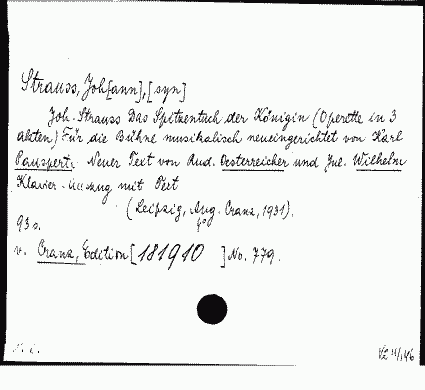 Strauss, Joh[ann],[syn]
Joh. Strauss Das Spitzentuch der Königin (Operette in 3
akten) Für die Bühne musikalisch neueingerichtet von Karl
Pauspertl. Neuer Text von Rud. Oesterreicher und Jul. Wilhelm
Klavier-Auszug mit Text
(Leipzig, Aug. Cranz, 1931).
4°
93 s.
v. Cranz, Edition [181910 ] No. 779.